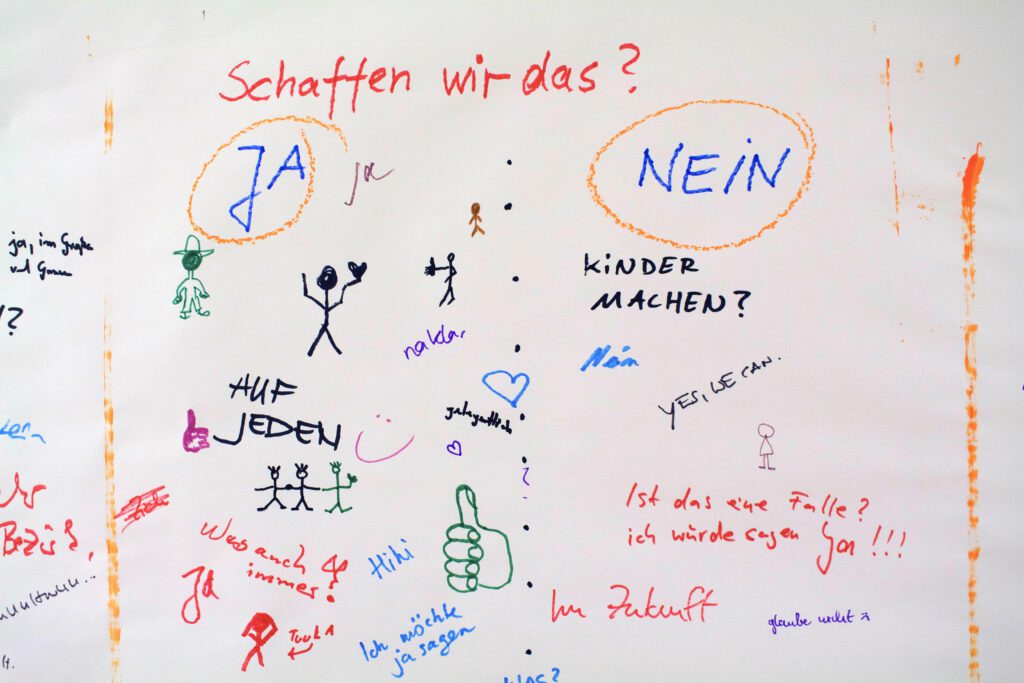 Schaffen wir das?
JA
ja
NEIN
ja, im Große
und Ganzen
!?
KINDER
MACHEN?
naklar
Nein
YES, WE CAN.
AUF
JEDEN
gelegentlich
?
Bezug?
Ist das eine Falle?
ich würde sagen Ja!!!
Was auch
immer!
JA
Hihi
Im Zukunft
glaube nicht :(
Ich möchte
ja sagen